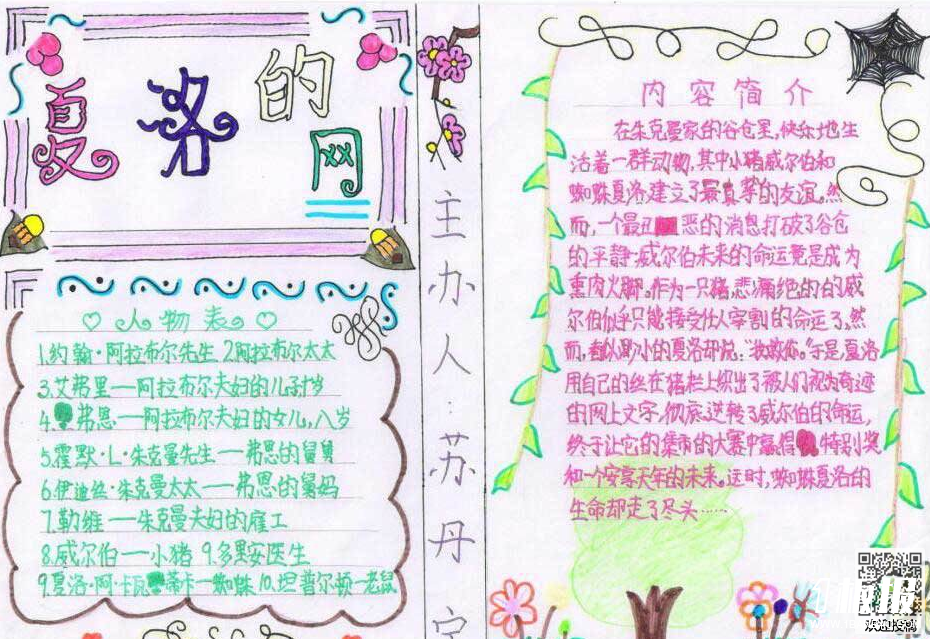 夏洛的网
人物表
1.约翰·阿拉布尔先生 2.阿拉布尔太太
3.艾弗里——阿拉布尔夫妇的儿子十岁
4.弗恩——阿拉布尔夫妇的女儿,八岁
5.霍默·L·朱克曼先生——弗恩的舅舅
6.伊迪丝·朱克曼太太——弗恩的舅妈
7.勒维——朱克曼夫妇的雇工
8.威尔伯——小猪 9.多里安医生
9.夏洛·阿·卡瓦蒂卡—蜘蛛 10.坦普尔顿—老鼠
主办人:苏丹
内容简介
在朱克曼家的谷仓里,快乐地生
活着一群动物,其中小猪威尔伯和
蜘蛛夏洛建立了最真挚的友谊。然
而,一个最丑恶的消息打破了谷仓
的平静:威尔伯未来的命运竟是成为
熏肉火腿。作为一只猪,悲痛绝的的威
尔伯似乎只能接受任人宰割的命运了,然
而,看似渺小的夏洛却说:"我救你。"于是,夏洛
用自己的丝在猪栏上织出了被人们视为奇迹
的网上文字,彻底逆转了威尔伯的命运,
终于让它的集市的大赛中赢得特别奖
和一个安享天年的未来。这时,蜘蛛夏洛的
生命却走了尽头……